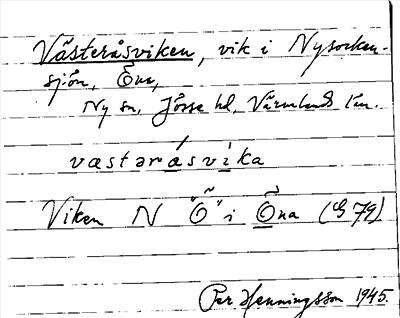 Västeråsviken, vik i Nysocken-
sjön, Öna,
Ny sn, Jösse hd, Värmlands län.
vastarásvíka
Viken N "Ö" i Öna (G 79)
Per Henningsson 1945.